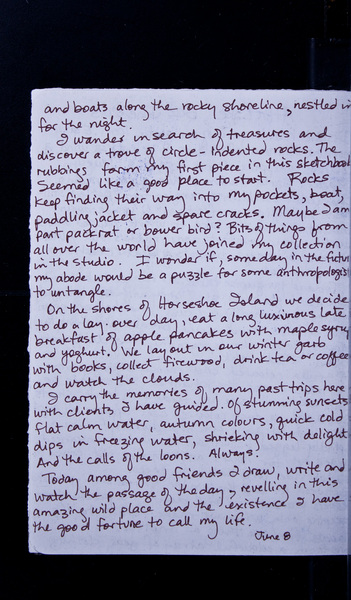 and boats along the rocky shoreline, nestled in
for the night.
I wander in search of treasures and
discover a trove of circle-indented rocks. The
rubbings form my first piece in this sketchbook
Seemed like a good place to start. Rocks
keep finding their way into my pockets, boat,
paddling jacket and spare cracks. Maybe I am
part packrat or bower bird? Bits of things from
all over the world have joined my collection
in the studio. I wonder if, some day in the future
my abode would be a puzzle for some anthropologist
to untangle.
On the shores of Horseshoe Island we decide
to do a lay-over day, eat a long luxurious late
breakfast of apple pancakes with maple syrup
and yoghurt. We lay out in our winter garb
with books, collect firewood, drink tea or coffee
and watch the clouds.
I carry the memories of many past trips here
with clients I have guided. Of stunning sunsets
flat calm water, autumn colours, quick cold
dips in freezing water, shrieking with delight
And the calls of the loons. Always.
Today among good friends I draw, write and
watch the passage of the day, revelling in this
amazing wild place and the existence I have
the good fortune to call my life.
June 8